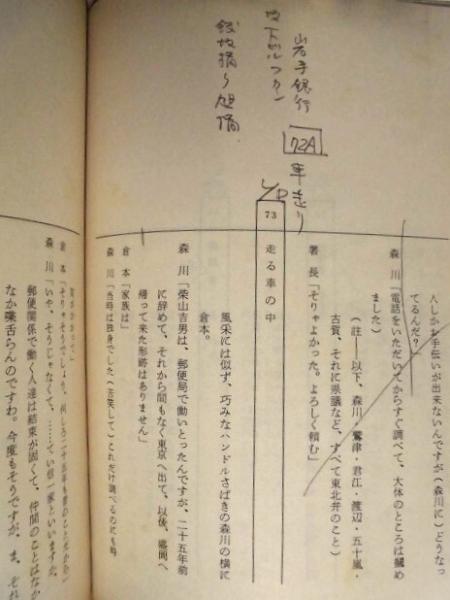 岩手銀行
72A 車走り
L/D
人しかお手伝いが出来ないんですが(森川に)どうなっ
てるんだ?」
森 川「電話をいただいてからすぐ調べて、大体のところは摑め
ました」
(註――以下、森川・鷲津・君江・渡辺・五十嵐・
古賀、それに県議など、すべて東北弁のこと)
署 長「そりゃよかった。よろしく頼む」
73 走る車の中
風采には似ず、巧みなハンドルさばきの森川の横に
倉本。
森 川「柴山吉男は、郵便局で働いとったんですが、二十五年前
に辞めて、それから間もなく東京へ出て、以後、盛岡へ
帰って来た形跡はありません」
倉 本「家族は」
森 川「当時は独身でした(苦笑して)これだけ調べるのにも時
倉 本「そりゃそうでしょう、何しろ二十五年も昔のことだから」
森 川「いや、そうじゃなくて、……てい信一家といいますた、
郵便関係で働く人達は結束が固くて、仲間のことはなか
なか喋舌らんのですわ。今度もそうですが、ま、それ